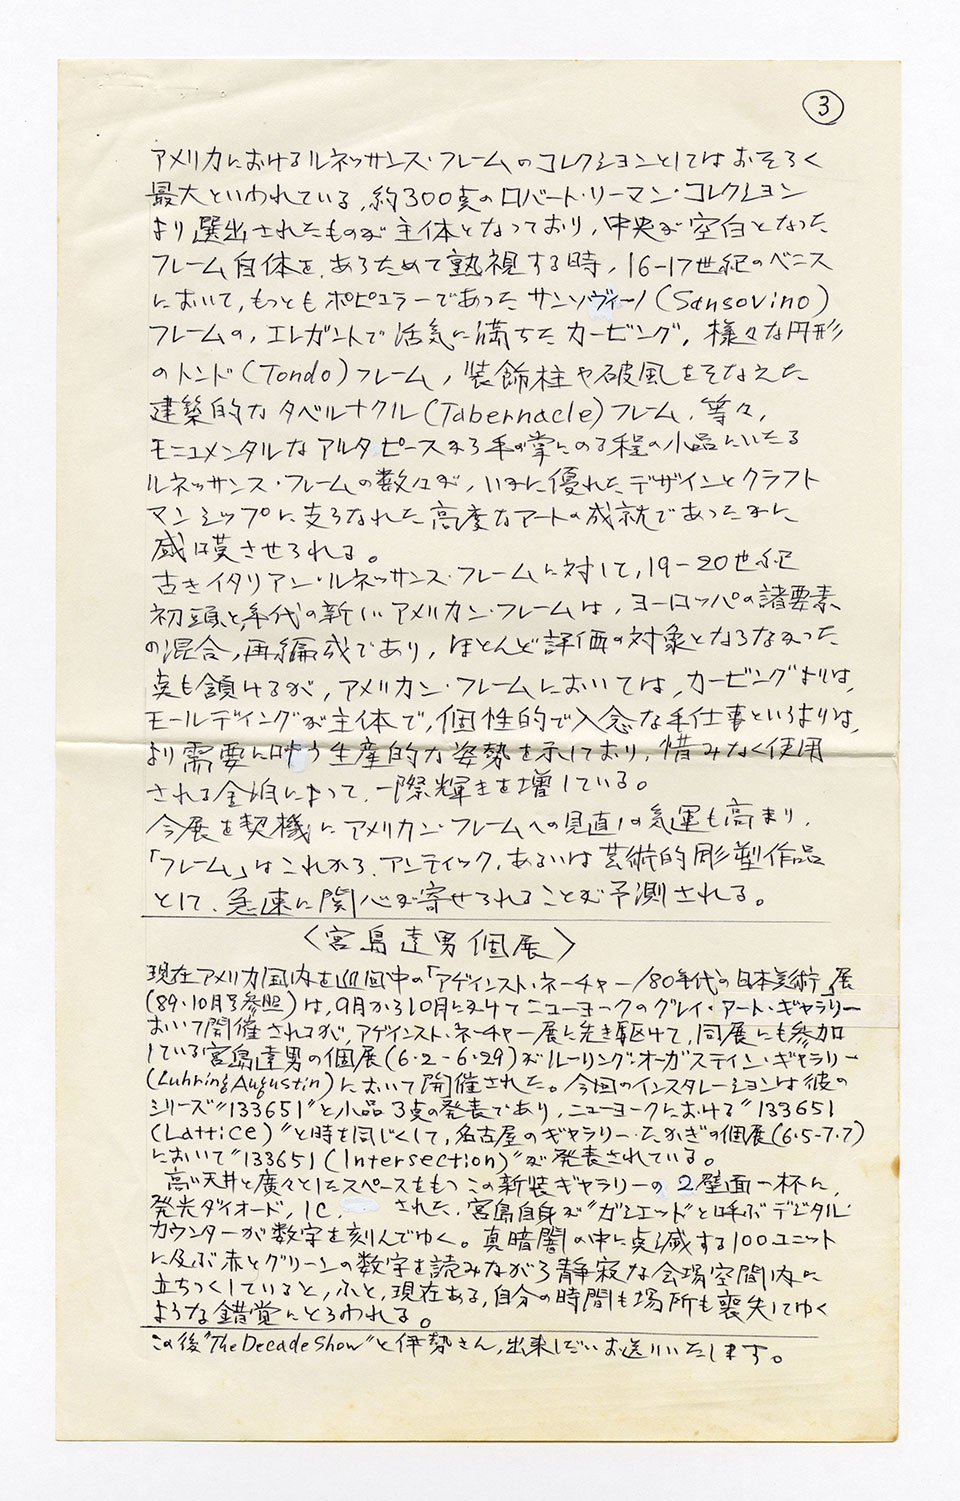 3
アメリカにおけるルネッサンス・フレームのコレクションとしてはおそらく
最大といわれている、約300点のロバート・リーマン・コレクション
より選出されたものが主体となっており、中央が空白となった
フレーム自体を、あらためて熟視する時、16-17世紀のベニス
において、もっともポピュラーであったサンソヴィーノ(Sansovino)
フレームの、エレガントで活気に満ちたカービング、様々な円形
のトンド(Tondo)フレーム、装飾柱や破風をそなえた
建築的なタベルナクル(Tabernacle)フレーム、等々、
モニュメンタルなアルタピースから手が掌にのる程の小品にいたる
ルネッサンス・フレームの数々が、いかに優れたデザインとクラフト
マンシップに支えられた高度なアートの成就であったかに
感嘆させられる。
古きイタリアン・ルネッサンス・フレームに対して、19-20世紀
初頭と、年代の新しいアメリカン・フレームは、ヨーロッパの諸要素
の混合、再編成であり、ほとんど評価の対象とならなかった
点も頷けるが、アメリカン・フレームにおいては、カービングよりは、
モールディングが主体で、個性的で入念な手仕事というよりは、
より需要に叶う生産的な姿勢を示しており、惜みなく使用
される金泊によって、一際輝きを増している。
今展を契機にアメリカン・フレームへの見直しの気運も高まり、
「フレーム」はこれから、アンティック、あるいは芸術的彫塑作品
として、急速に関心が寄せられることが予測される。
〈宮島達男個展〉
現在アメリカ国内を巡回中の「アゲインスト・ネーチャー/80年代の日本美術」展
(89・10月号参照)は、9月から10月にかけてニューヨークのグレイ・アート・ギャラリー
おいて開催されるが、アゲインスト・ネーチャー展に先き駆けて、同展にも参加
している宮島達男の個展(6・2-6・29)がルーリング・オーガスティン・ギャラリー
(Luhring Augustin)において開催された。今回のインスタレーションは彼の
シリーズ“133651”と小品3点の発表であり、ニューヨークにおける“133651
(Lattice)”と時を同じくして、名古屋のギャラリー・たかぎの個展(6・5-7・7)
において“133651(Intersection)”が発表されている。
高い天井と廣々としたスペースをもつこの新装ギャラリーの2壁面一杯に、
発光ダイオード、IC、された、宮島自身が“ガジェッド”と呼ぶデジタル・
カウンターが数字を刻んでゆく。真暗闇の中に点滅する100ユニット
に及ぶ赤とグリーンの数字を読みながら静寂な会場空間内に
立ちつくしていると、ふと、現在ある、自分の時間も場所も喪失してゆく
ような錯覚にとらわれる。
この後“The Decade Show”と伊勢さん、出来しだいお送りいたします。